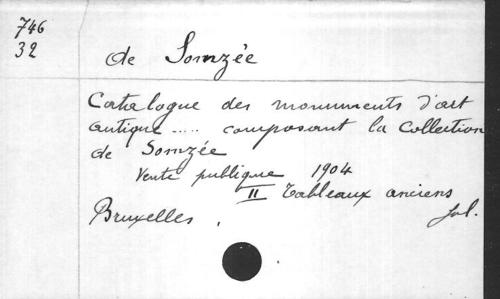 746
32
de Somzée
Catalogue des monuments d'art
antique ..... composant la Collection
de Somzée
Vente publique 1904
II Tableaux anciens
Bruxelles . fol.